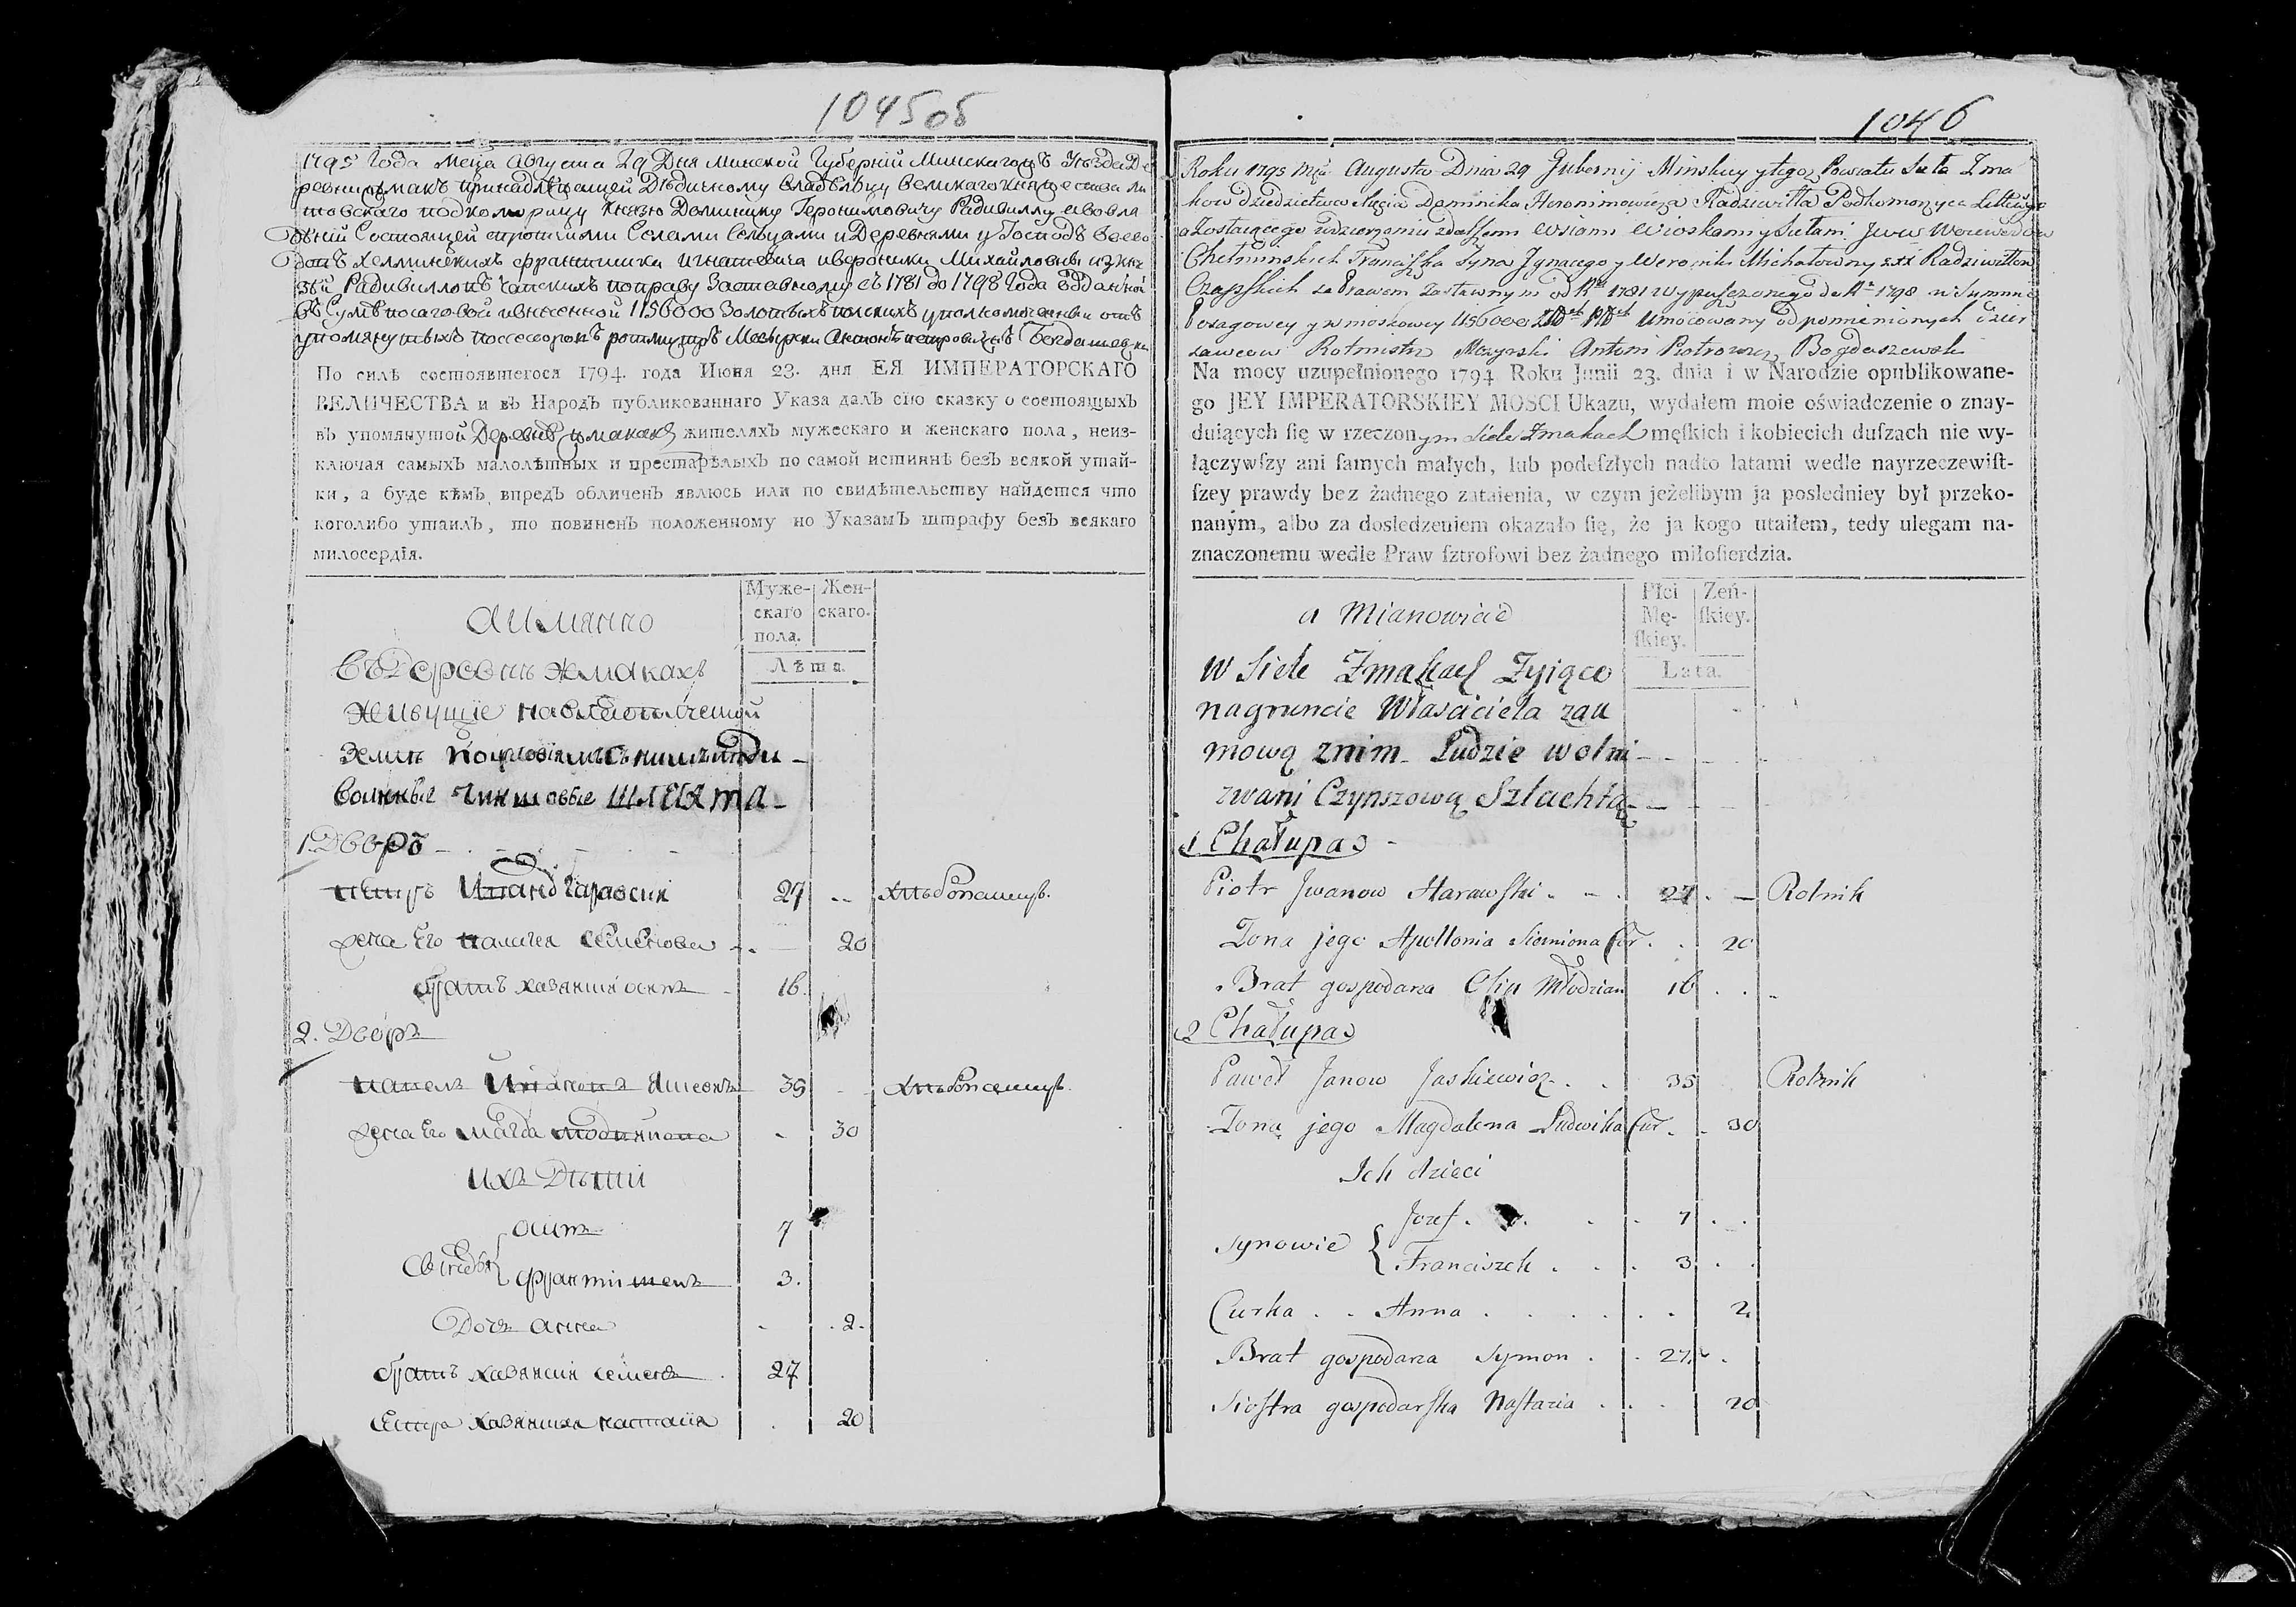 1045 об
1795 Года Меца Августа 29 Дня Минской Губернїи Минскагожъ Уѣзда Де
ревни принадлежащей Дѣдичному владѣльцу великаго княжества ли
товскаго подкоморицу Князю Доминику Геронимовичу Радивиллу авовла
дѣнїи Состоящей спротчими Селами Сельцами и Деревнями у Господъ воево
дъ хелминскихъ франтишка игнатевича ивероники Михайловны изкня
зей Радивилловъ чапскихъ поправу Заставному съ 1781 до 1798 Года отданной
въ Сумѣ посаговой ивнесенной 1156000 Золотыхъ полскихъ уполномоченный отъ
упомянутыхъ посесоровъ ротмистръ Мозырски Антонъ петровичъ Богдашевски
По силѣ состоявшегося 1794. года Июня 23. дня ЕЯ ИМПЕРАТОРСКАГО
ВЕЛИЧЕСТВА и въ Народъ публикованнаго Указа далъ сїю сказку о состоящыхъ
въ упомянутой Деревнѣ жмаках жителяхъ мужескаго и женскаго пола, неиз-
ключая самыхъ малолѣтныхъ и престарѣлыхъ по самой истиннѣ безъ всякой утай-
ки, а буде кѣмъ впредъ обличенъ явлюсь или по свидѣтельству найдется что
коголибо утаилъ, то повиненъ положенному по Указамъ штрафу безъ всякаго
милосердїя.
Муже-
скаго
пола.
Жен-
скаго.
Лѣта.
Аимянно
въ Деревнѣ жмакахъ
Живущїе
Земли
волныые чиншовые шляхта
1. Дворъ
Иванов 27 Хлѣбопашецъ.
жена Его палагея семенова 20
братъ хазяина осипъ 16
2. Дворъ
павелъ 35 Хлѣбопашецъ.
жена Его магда 30
ихъ Дѣти
осипъ 7
Сыновья
франтишекъ 3.
Дочь анна 2.
братъ хазяина семенъ 27
сестра хазяина настасїя 20
1046
Roku 1795 Mca Augusta Dnia 29 Gubernij Minskiey ytegoz Powiatu Sioła Zma
kow dziedzictwa Xięcia Dominika Heronimowicza Radziwiłła Podkomorzyca Littgo
a Zostaiącego wdzierzeniu zdalszemi wsiami wioskami y siołami Jww Woiewodow
Chełminskich Franciszka Syna Jgnacego y Weroniki Michałowny zxx Radziwiłłow
Czapskich za Prawem Zastawnym od Rku 1781 wypuszczonego do Rku 1798 w Summie
Posagowey y wniosłowey 1156000 Umocowany od pomienionych dzier
zawcow Rotmistrz Mozyrski Antoni Piotrowicz Bogdaszewski
Na mocy uzupełnionego 1794 Roku Junii 23. dnia i w Narodzie opublikowane-
go JEY IMPERATORSKIEY MOSCI Ukazu, wydałem moie oświadczenie o znay-
duiących ſię w rzeczonym Siele Zmakach męſkich i kobiecich duſzach nie wy-
łączywſzy ani ſamych małych, lub podeſzłych nadto latami wedle nayrzeczewiſt-
ſzey prawdy bez żadnego zataienia, w czym jeżelibym ja posledniey był przeko-
nanym, albo za dosledzeniem okazało ſię, że ja kogo utaiłem, tedy ulegam na-
znaczonemu wedle Praw ſztrofowi bez żadnego miłoſierdzia.
Płci
Mę-
ſkiey.
Zeń-
ſkiey.
Lata.
a Mianowicie
w Siele Zmakach Zyiące
nagruncie Własciciela zau
mową znim Ludzie wolni
zwani Czynszową Szlachtą
1 Chałupa
Piotr Jwanow Harawski 27 Rolnik
Zona jego Apollonia Siemiona Cór. 20
Brat gospodarza Osip Młodzian 16
2 Chałupa
Paweł Janow Jaskiewicz 35 Rolnik
Zona jego Magdalena Ludwika Cór. 30
Ich dzieci
Jozef 7
synowie
Franciszek 3
Curka Anna 2
Brat gospodarza Symon 27
Siostra gospodarska Nastazia 20